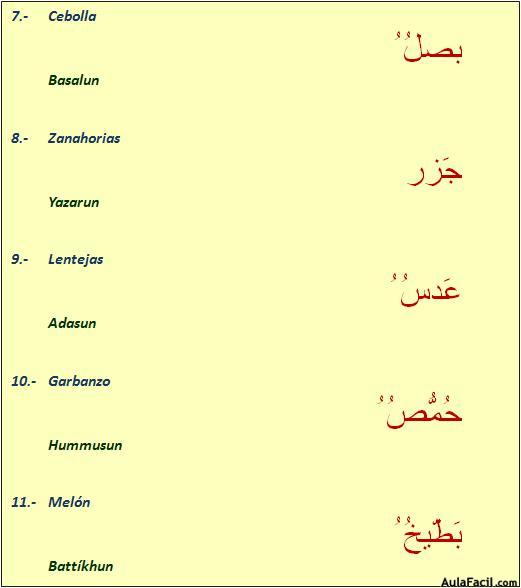 7.- Cebolla
بصلُ ُ
Basalun
8.- Zanahorias
جَزر
Yazarun
9.- Lentejas
عَدسُ ُ
Adasun
10.- Garbanzo
حُمُّصُ ُ
Hummusun
11.- Melón
بَطّيخُ ُ
Battíkhun
AulaFacil.com